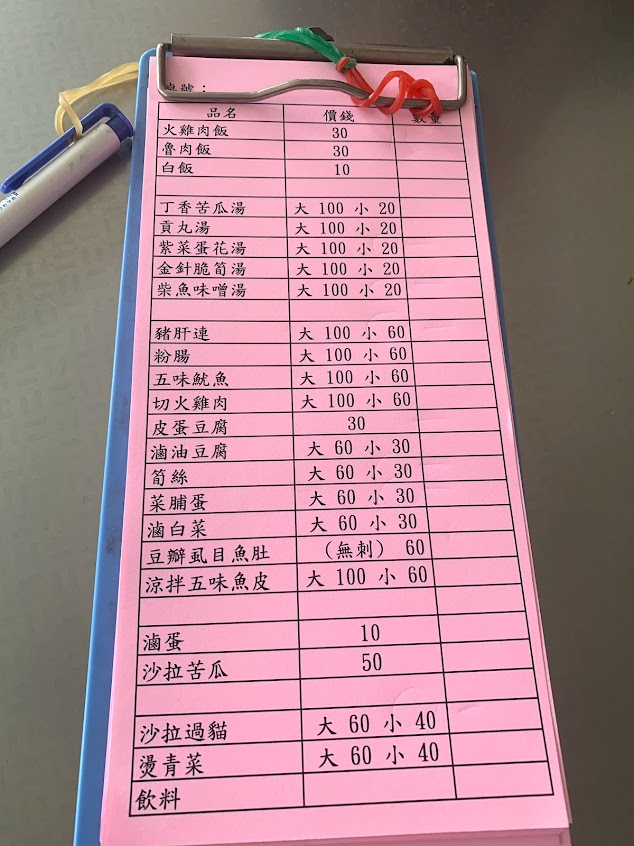 桌號：
品名 價錢 數量
火雞肉飯 30
魯肉飯 30
白飯 10
丁香苦瓜湯 大 100 小 20
貢丸湯 大 100 小 20
紫菜蛋花湯 大 100 小 20
金針脆筍湯 大 100 小 20
柴魚味噌湯 大 100 小 20
豬肝連 大 100 小 60
粉腸 大 100 小 60
五味魷魚 大 100 小 60
切火雞肉 大 100 小 60
皮蛋豆腐 30
滷油豆腐 大 60 小 30
筍絲 大 60 小 30
菜脯蛋 大 60 小 30
滷白菜 大 60 小 30
豆瓣虱目魚肚 （無刺） 60
涼拌五味魚皮 大 100 小 60
滷蛋 10
沙拉苦瓜 50
沙拉過貓 大 60 小 40
燙青菜 大 60 小 40
飲料